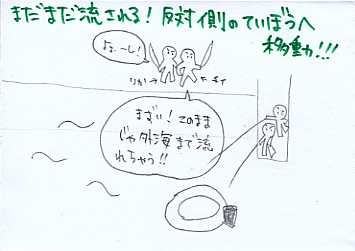 まだまだ流される！反対側のていぼうへ
移動!!!
よぉーし！
りか→
←チイ
まずい！このまま
じゃ外海まで流
れちゃう!!